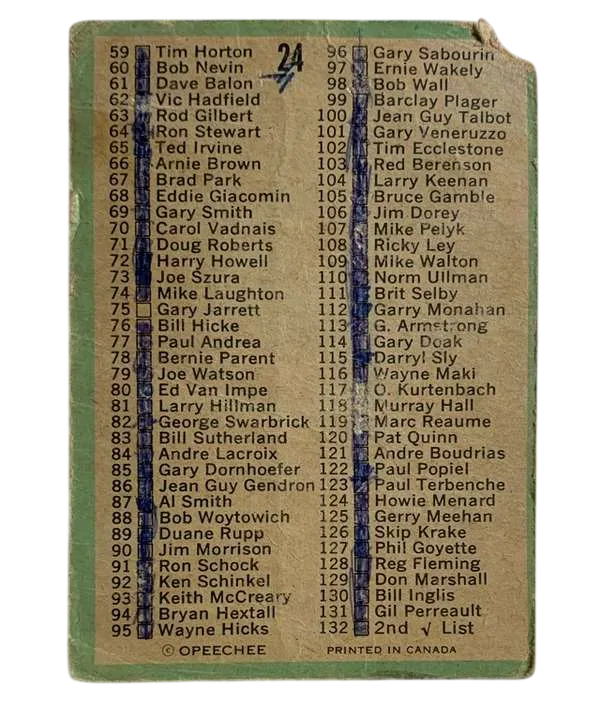 59 Tim Horton
60 Bob Nevin
61 Dave Balon
62 Vic Hadfield
63 Rod Gilbert
64 Ron Stewart
65 Ted Irvine
66 Arnie Brown
67 Brad Park
68 Eddie Giacomin
69 Gary Smith
70 Carol Vadnais
71 Doug Roberts
72 Harry Howell
73 Joe Szura
74 Mike Laughton
75 Gary Jarrett
76 Bill Hicke
77 Paul Andrea
78 Bernie Parent
79 Joe Watson
80 Ed Van Impe
81 Larry Hillman
82 George Swarbrick
83 Bill Sutherland
84 Andre Lacroix
85 Gary Dornhoefer
86 Jean Guy Gendron
87 Al Smith
88 Bob Woytowich
89 Duane Rupp
90 Jim Morrison
91 Ron Schock
92 Ken Schinkel
93 Keith McCreary
94 Bryan Hextall
95 Wayne Hicks
24
96 Gary Sabourin
97 Ernie Wakely
98 Bob Wall
99 Barclay Plager
100 Jean Guy Talbot
101 Gary Veneruzzo
102 Tim Ecclestone
103 Red Berenson
104 Larry Keenan
105 Bruce Gamble
106 Jim Dorey
107 Mike Pelyk
108 Ricky Ley
109 Mike Walton
110 Norm Ullman
111 Brit Selby
112 Garry Monahan
113 G. Armstrong
114 Gary Doak
115 Darryl Sly
116 Wayne Maki
117 O. Kurtenbach
118 Murray Hall
119 Marc Reaume
120 Pat Quinn
121 Andre Boudrias
122 Paul Popiel
123 Paul Terbenche
124 Howie Menard
125 Gerry Meehan
126 Skip Krake
127 Phil Goyette
128 Reg Fleming
129 Don Marshall
130 Bill Inglis
131 Gil Perreault
132 2nd √ List
© OPEECHEE
PRINTED IN CANADA